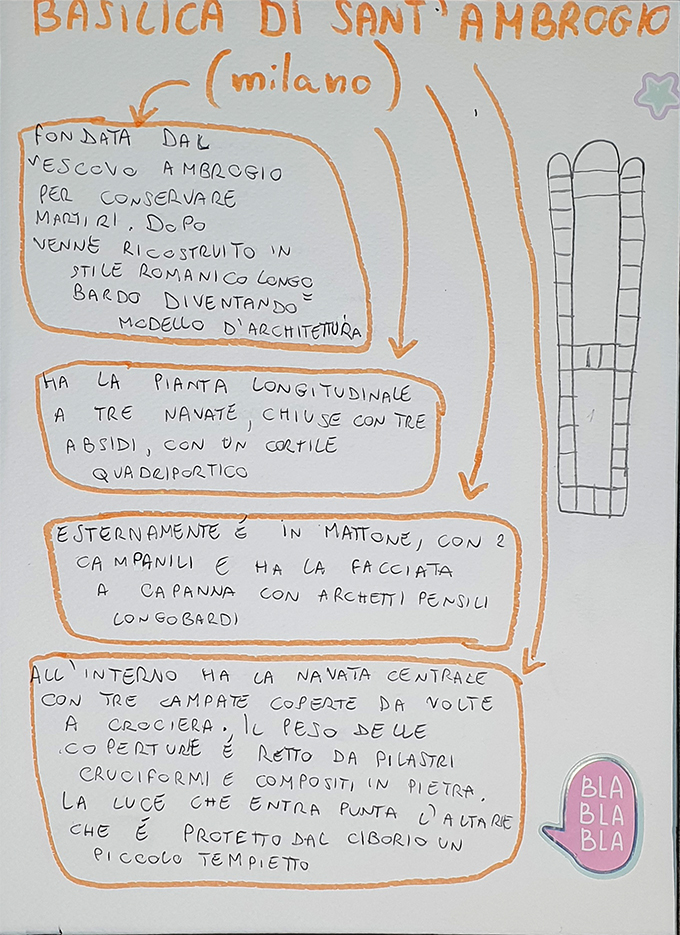 BASILICA DI SANT'AMBROGIO
(milano)
FONDATA DAL
VESCOVO AMBROGIO
PER CONSERVARE
MARTIRI. DOPO
VENNE RICOSTRUITO IN
STILE ROMANICO LONGO
BARDO DIVENTANDO =
MODELLO D'ARCHITETTURA
HA LA PIANTA LONGITUDINALE
A TRE NAVATE, CHIUSE CON TRE
ABSIDI, CON UN CORTILE
QUADRIPORTICO
ESTERNAMENTE É IN MATTONE, CON 2
CAMPANILI E HA LA FACCIATA
A CAPANNA CON ARCHETTI PENSILI
LONGOBARDI
ALL'INTERNO HA LA NAVATA CENTRALE
CON TRE CAMPATE COPERTE DA VOLTE
A CROCIERA. IL PESO DELLE
COPERTURE É RETTO DA PILASTRI
CRUCIFORMI E COMPOSITI IN PIETRA.
LA LUCE CHE ENTRA PUNTA L'ALTARE
CHE É PROTETTO DAL CIBORIO UN
PICCOLO TEMPIETTO
BLA
BLA
BLA